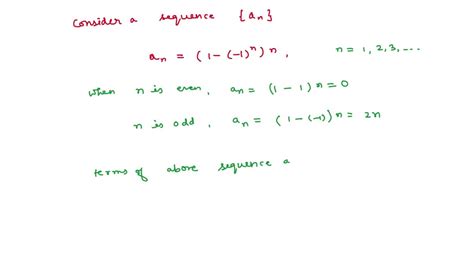 Consider a sequence {aₙ}
aₙ = (1-(-1)ⁿ) n, n = 1, 2, 3, ...
when n is even, aₙ = (1 - 1) n = 0
n is odd, aₙ = (1 - (-1)) n = 2n
terms of above sequence a